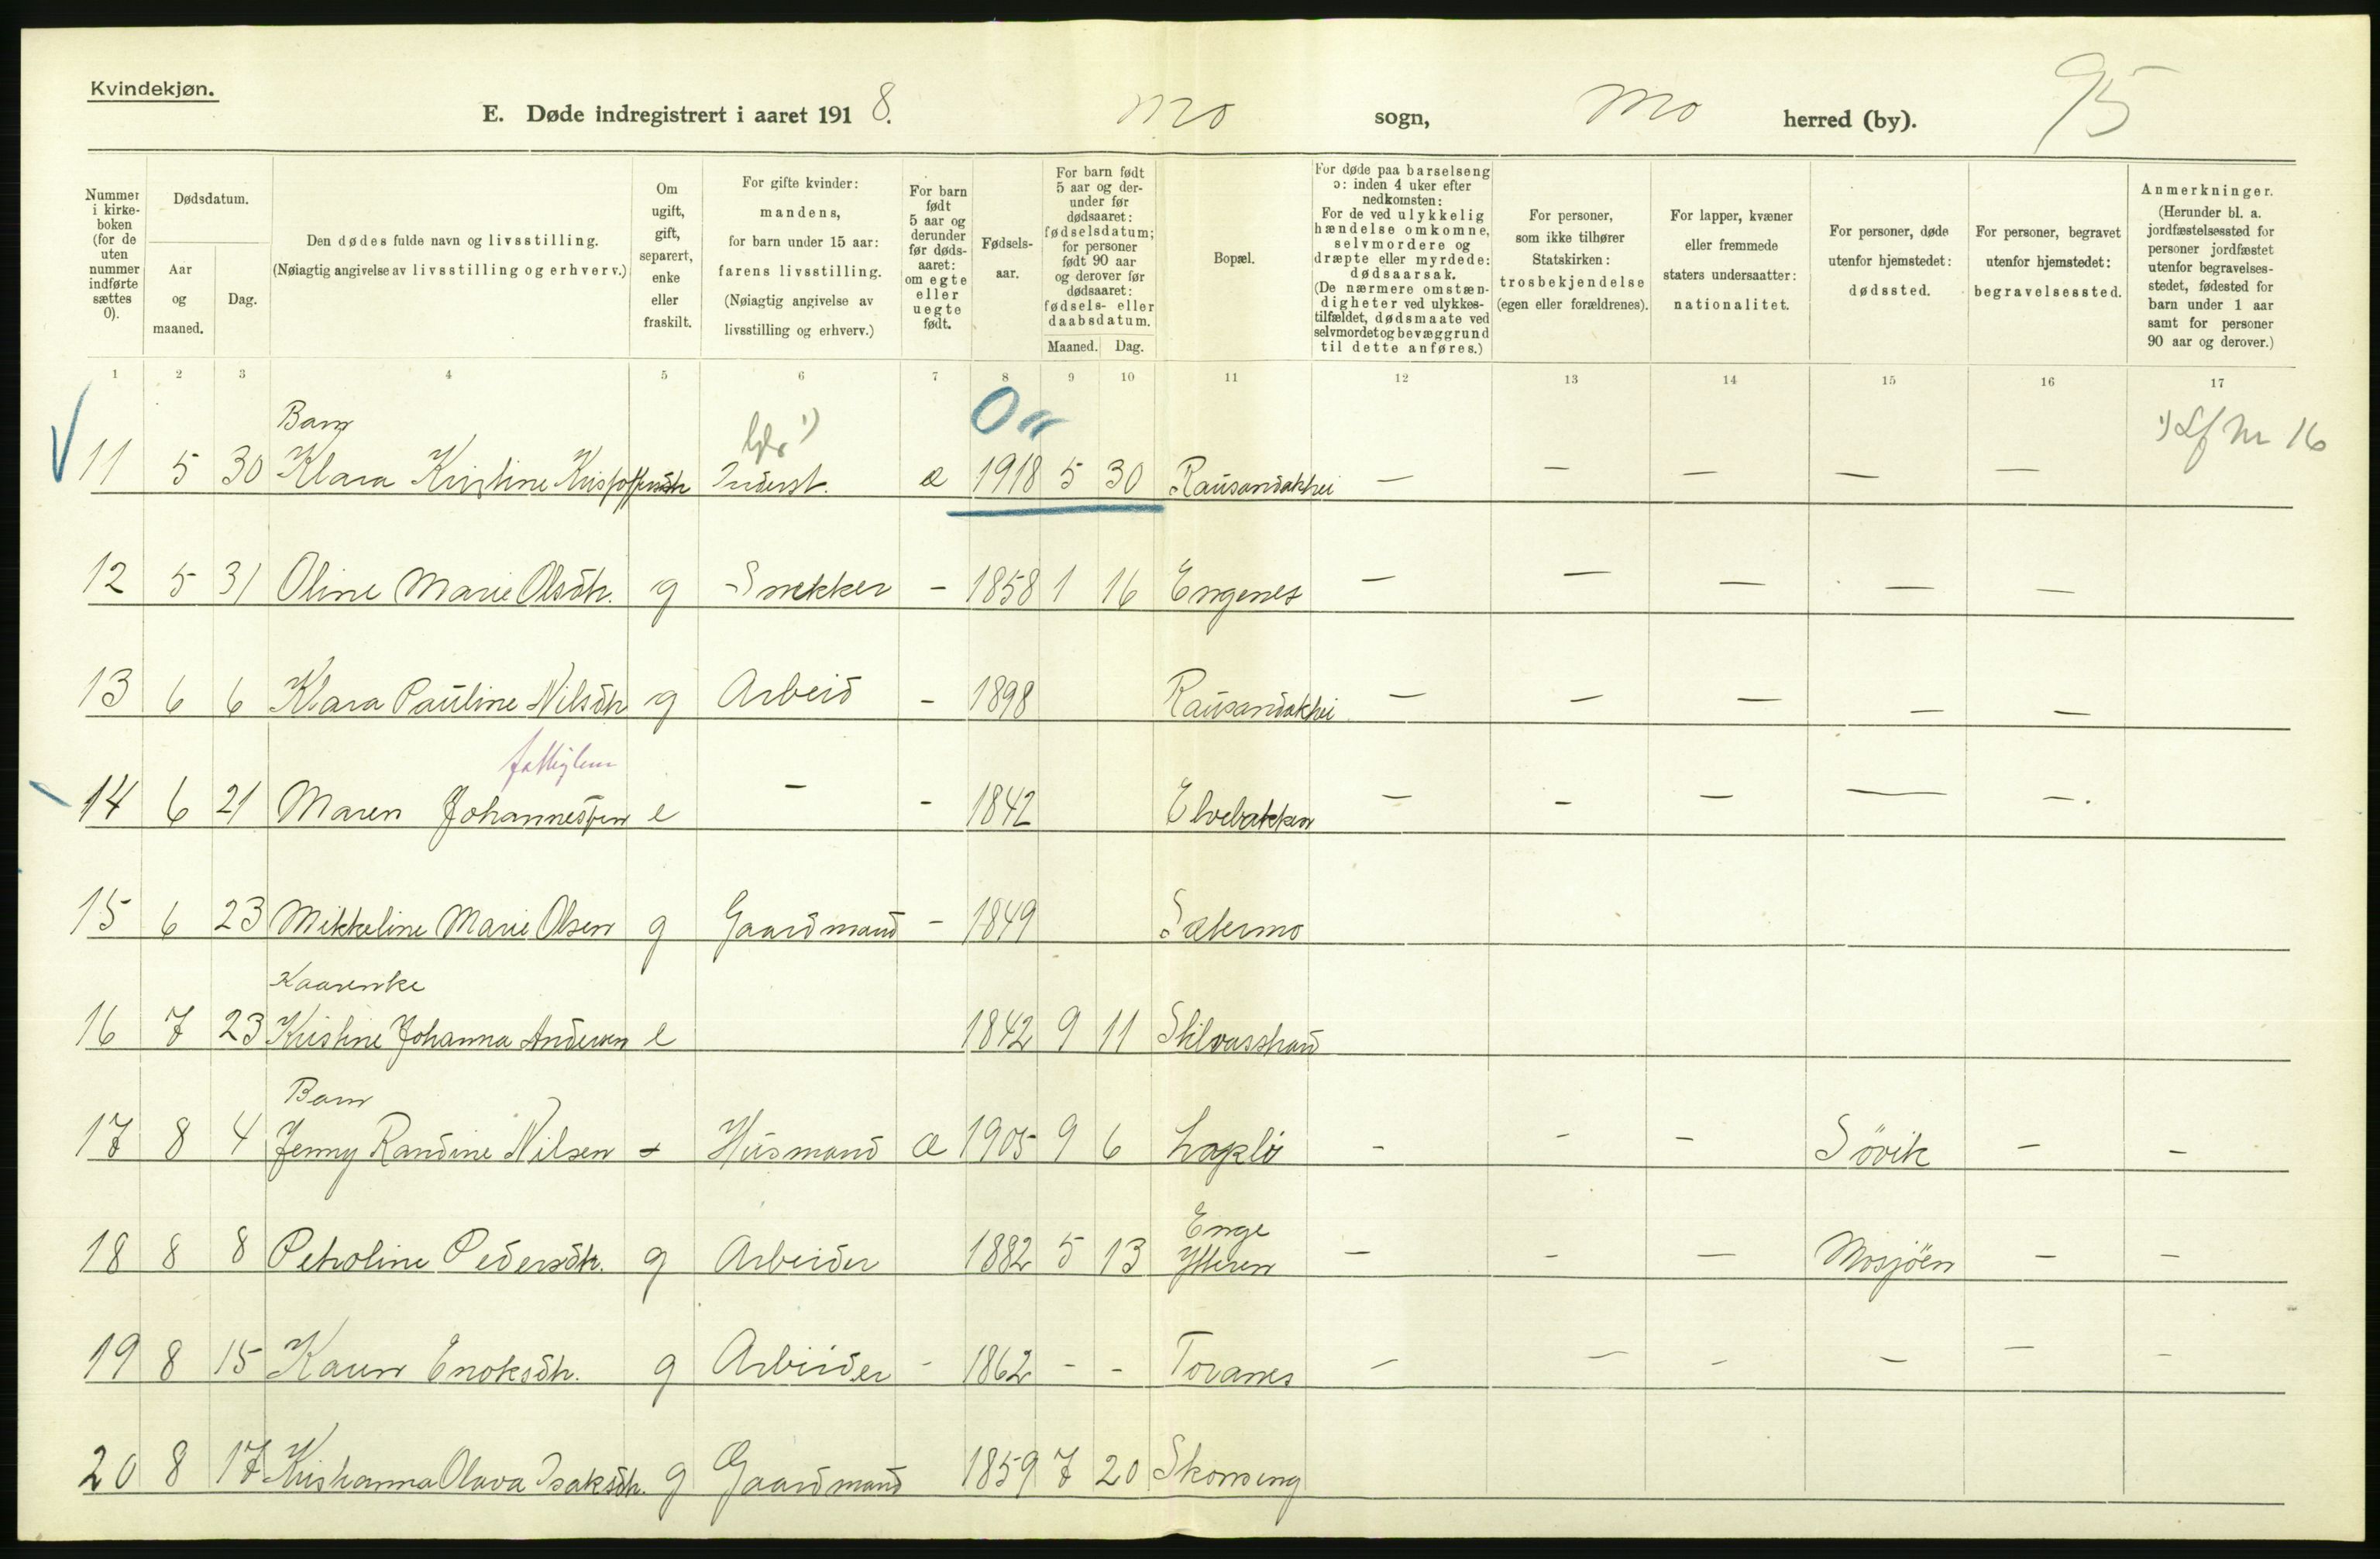 Kvindekjøn.
E. Døde indregistrert i aaret 1918. Mo sogn, Mo herred (by). 95
Nummer i kirkeboken (for de uten nummer indførte sættes 0).
Dødsdatum.
Aar og maaned.
Dag.
Den dødes fulde navn og livsstilling.
(Nøiagtig angivelse av livsstilling og erhverv.)
Om ugift, gift, separert, enke eller fraskilt.
For gifte kvinder: mandens, for barn under 15 aar: farens livsstilling. (Nøiagtig angivelse av livsstilling og erhverv.)
For barn født 5 aar og derunder før dødsaaret: om egte eller uegte født.
Fødselsaar.
For barn født 5 aar og derunder før dødsaaret: fødselsdatum; for personer født 90 aar og derover før dødsaaret: fødsels- eller daabsdatum.
Maaned. Dag.
Bopæl.
For døde paa barselseng ɔ: inden 4 uker efter nedkomsten: For de ved ulykkelig hændelse omkomne, selvmordere og dræpte eller myrdede: dødsaarsak. (De nærmere omstændigheter ved ulykkestilfældet, dødsmaate ved selvmordet og bevæggrund til dette anføres.)
For personer, som ikke tilhører Statskirken: trosbekjendelse (egen eller forældrenes).
For lapper, kvæner eller fremmede staters undersaatter: nationalitet.
For personer, døde utenfor hjemstedet: dødssted.
For personer, begravet utenfor hjemstedet: begravelsessted.
Anmerkninger. (Herunder bl. a. jordfæstelsessted for personer jordfæstet utenfor begravelsesstedet, fødested for barn under 1 aar samt for personer 90 aar og derover.)
1 2 3 4 5 6 7 8 9 10 11 12 13 14 15 16 17
Barn
11 5 30 Klara Kristine Kristoffersdtr Inderst. e 1918 5 30 Rausandakhei — — — — — 1) Lf Nr 16
12 5 31 Oline Marie Olsdtr. g Snekker - 1858 1 16 Engenes — — — — —
13 6 6 Klara Pauline Nilsdtr g Arbeid - 1898 Rausandakhei — — — — —
fattiglem
14 6 21 Maren Johannessen e - - 1842 Elvebakken — - — — -.
15 6 23 Mikkeline Marie Olsen g Gaardmand - 1849 Sætermo
Kaarenke
16 7 23 Kristine Johanna Andersen e 1842 9 11 Stilvasstrand
Barn
17 8 4 Jenny Randine Nilsen Husmand e 1905 9 6 - - - Sövik - -
18 8 8 Petroline Pedersdtr. g Arbeider 1882 5 13 Enge Ytteren — - — Mosjöen - -
19 8 15 Karen Enoksdtr. g Arbeider - 1862 - - Toranes - - - - - -
20 8 17 Kristianna Olava Isaksdtr. g Gaardmand 1859 7 20 Skonseng